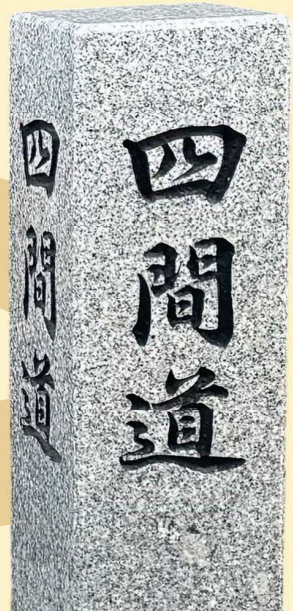 四間道
四間道